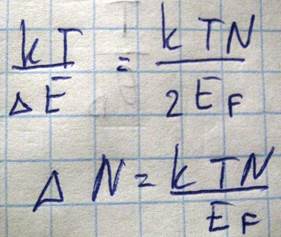 kT/ΔE = kTN/2E_F
ΔN = kTN/E_F